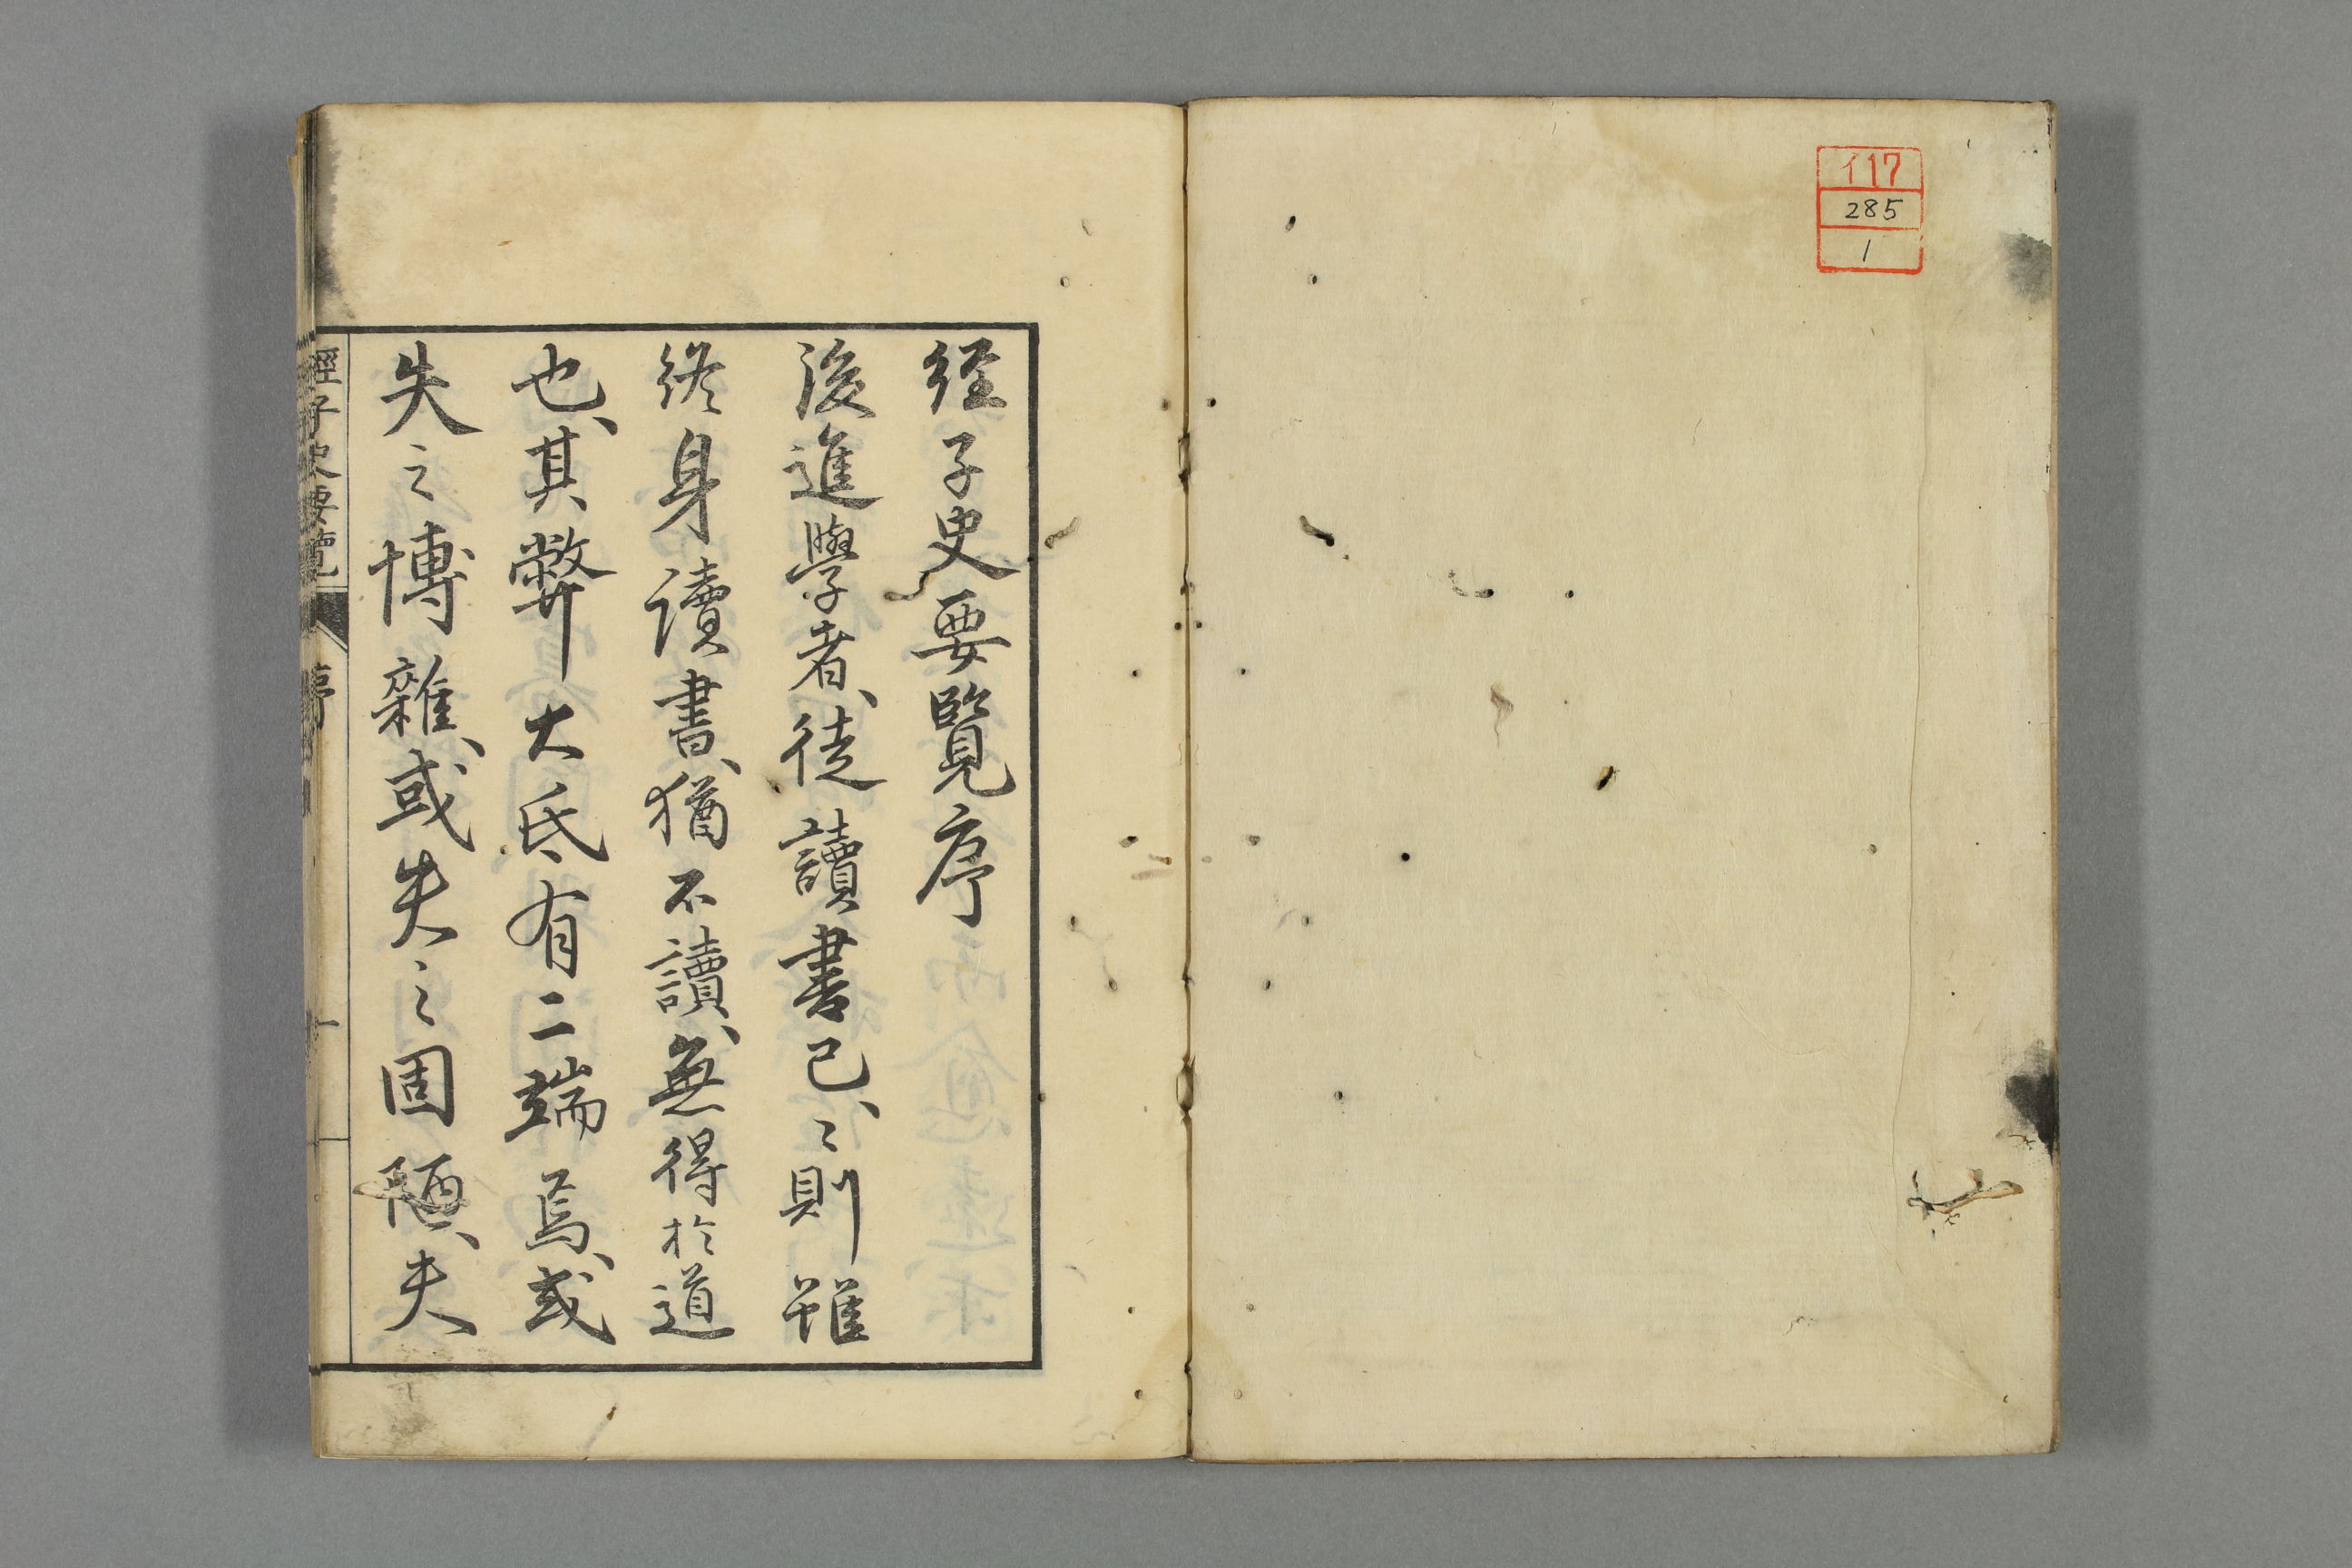 イ17
285
1
経子史要覽序
後進學者、徒讀書已、〻則雖
終身讀書、猶不讀、無得於道
也、其弊大氐有二端焉、或
失之博雜、或失之固陋、夫
經子史要覽 序 一